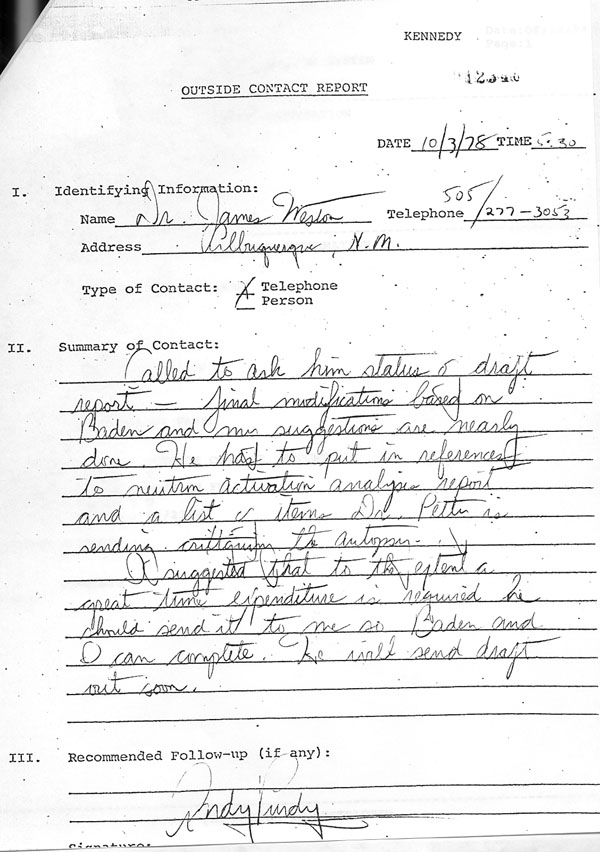 KENNEDY
OUTSIDE CONTACT REPORT
DATE 10/3/78 TIME 5:30
I. Identifying Information:
Name Dr. James Weston Telephone 505/277-3053
Address Albuquerque, N.M.
Type of Contact: X Telephone
Person
II. Summary of Contact:
Called to ask him status of draft
report — final modifications based on
Baden and my suggestions are nearly
done. He has to put in references
to neutron activation analysis report
and a list of items Dr. Petty is
sending critiquing the autopsy.
I suggested that to the extent a
great time expenditure is required he
should send it to me so Baden and
I can complete. He will send draft
out soon.
III. Recommended Follow-up (if any):
Andy Purdy
Signature: